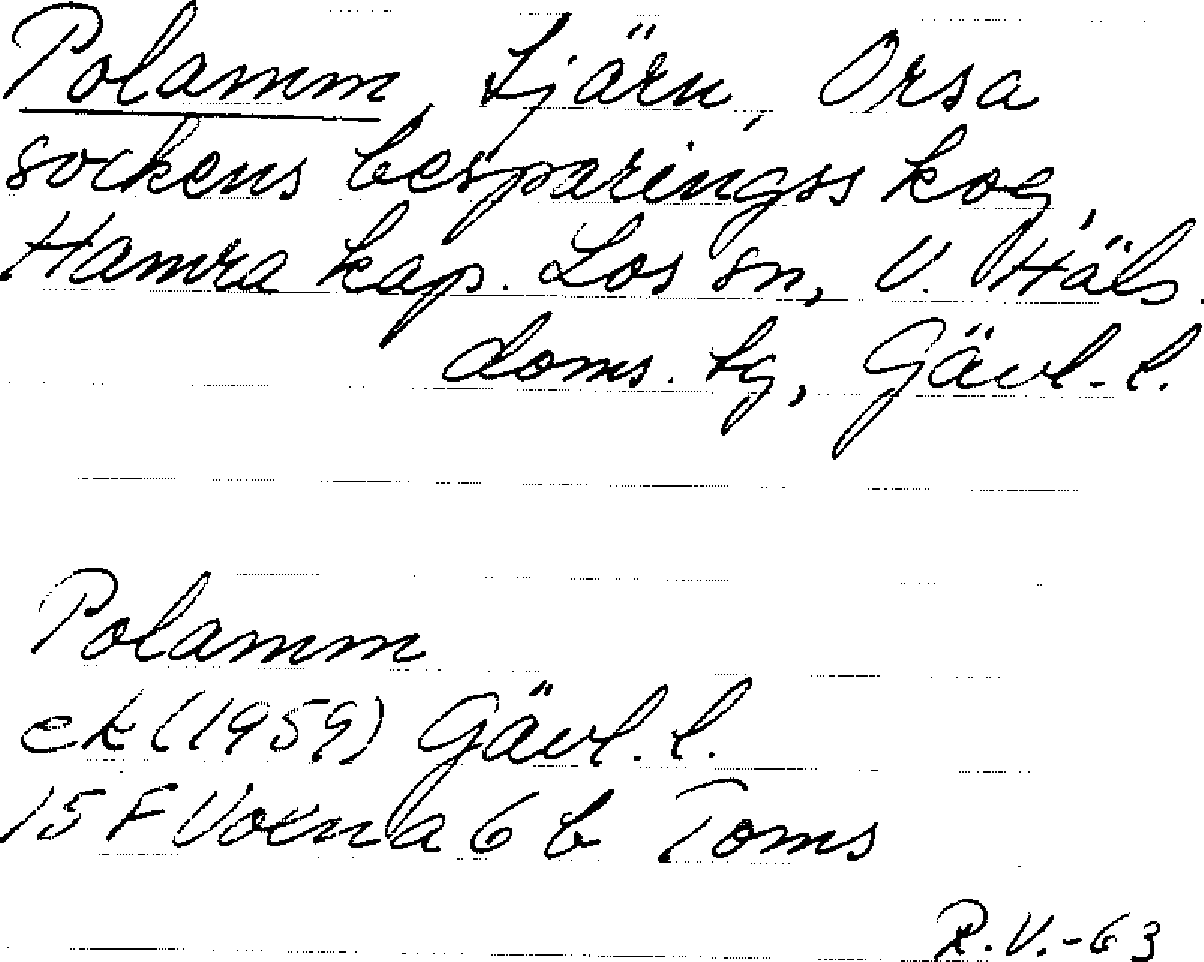 Polamm, tjärn, Orsa
sockens besparingss kog,
Hamra kap. Los sn, V. Häls.
doms. tg, Gävl. l.
Polamm
ek (1959) Gävl. l.
15 F Voxna 6 b Toms
R.V.-63